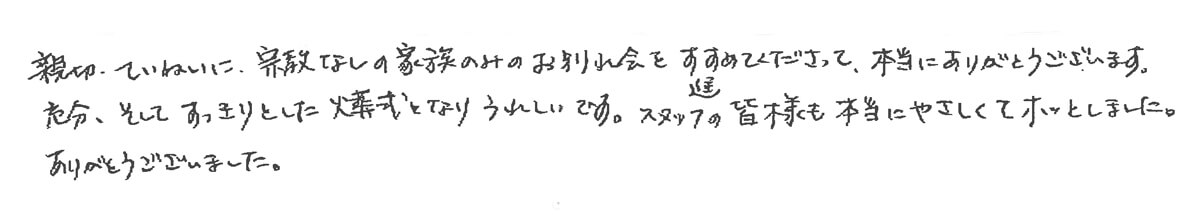 親切・ていねいに、宗教なしの家族のみのお別れ会をすすめてくださって、本当にありがとうございます。
進
充分、そしてすっきりとした火葬式となりうれしいです。スタッフの皆様も本当にやさしくてホッとしました。
ありがとうございました。